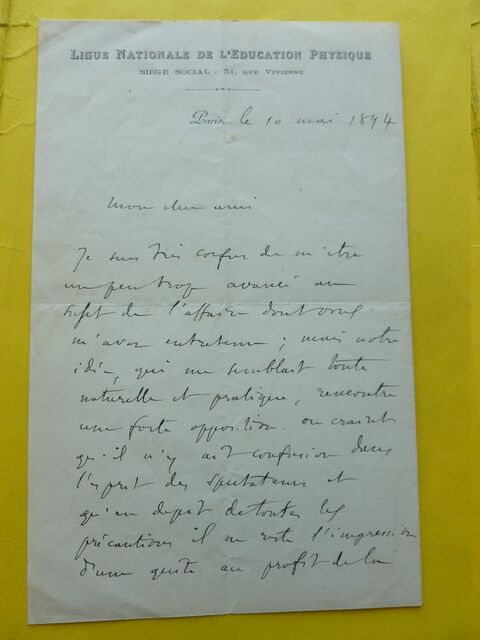 LIGUE NATIONALE DE L'EDUCATION PHYSIQUE
SIÈGE SOCIAL : 51, RUE VIVIENNE
Paris, le 10 mai 1894
Mon cher ami
Je suis très confus de m'être
un peu trop avancé au
sujet de l'affaire dont vous
m'avez entretenu ; mais notre
idée, qui me semblait toute
naturelle et pratique, rencontre
une forte opposition. On craint
qu'il n'y ait confusion dans
l'esprit des spectateurs et
qu'en dépit de toutes les
précautions il ne reste l'impression
d'une quête au profit de la